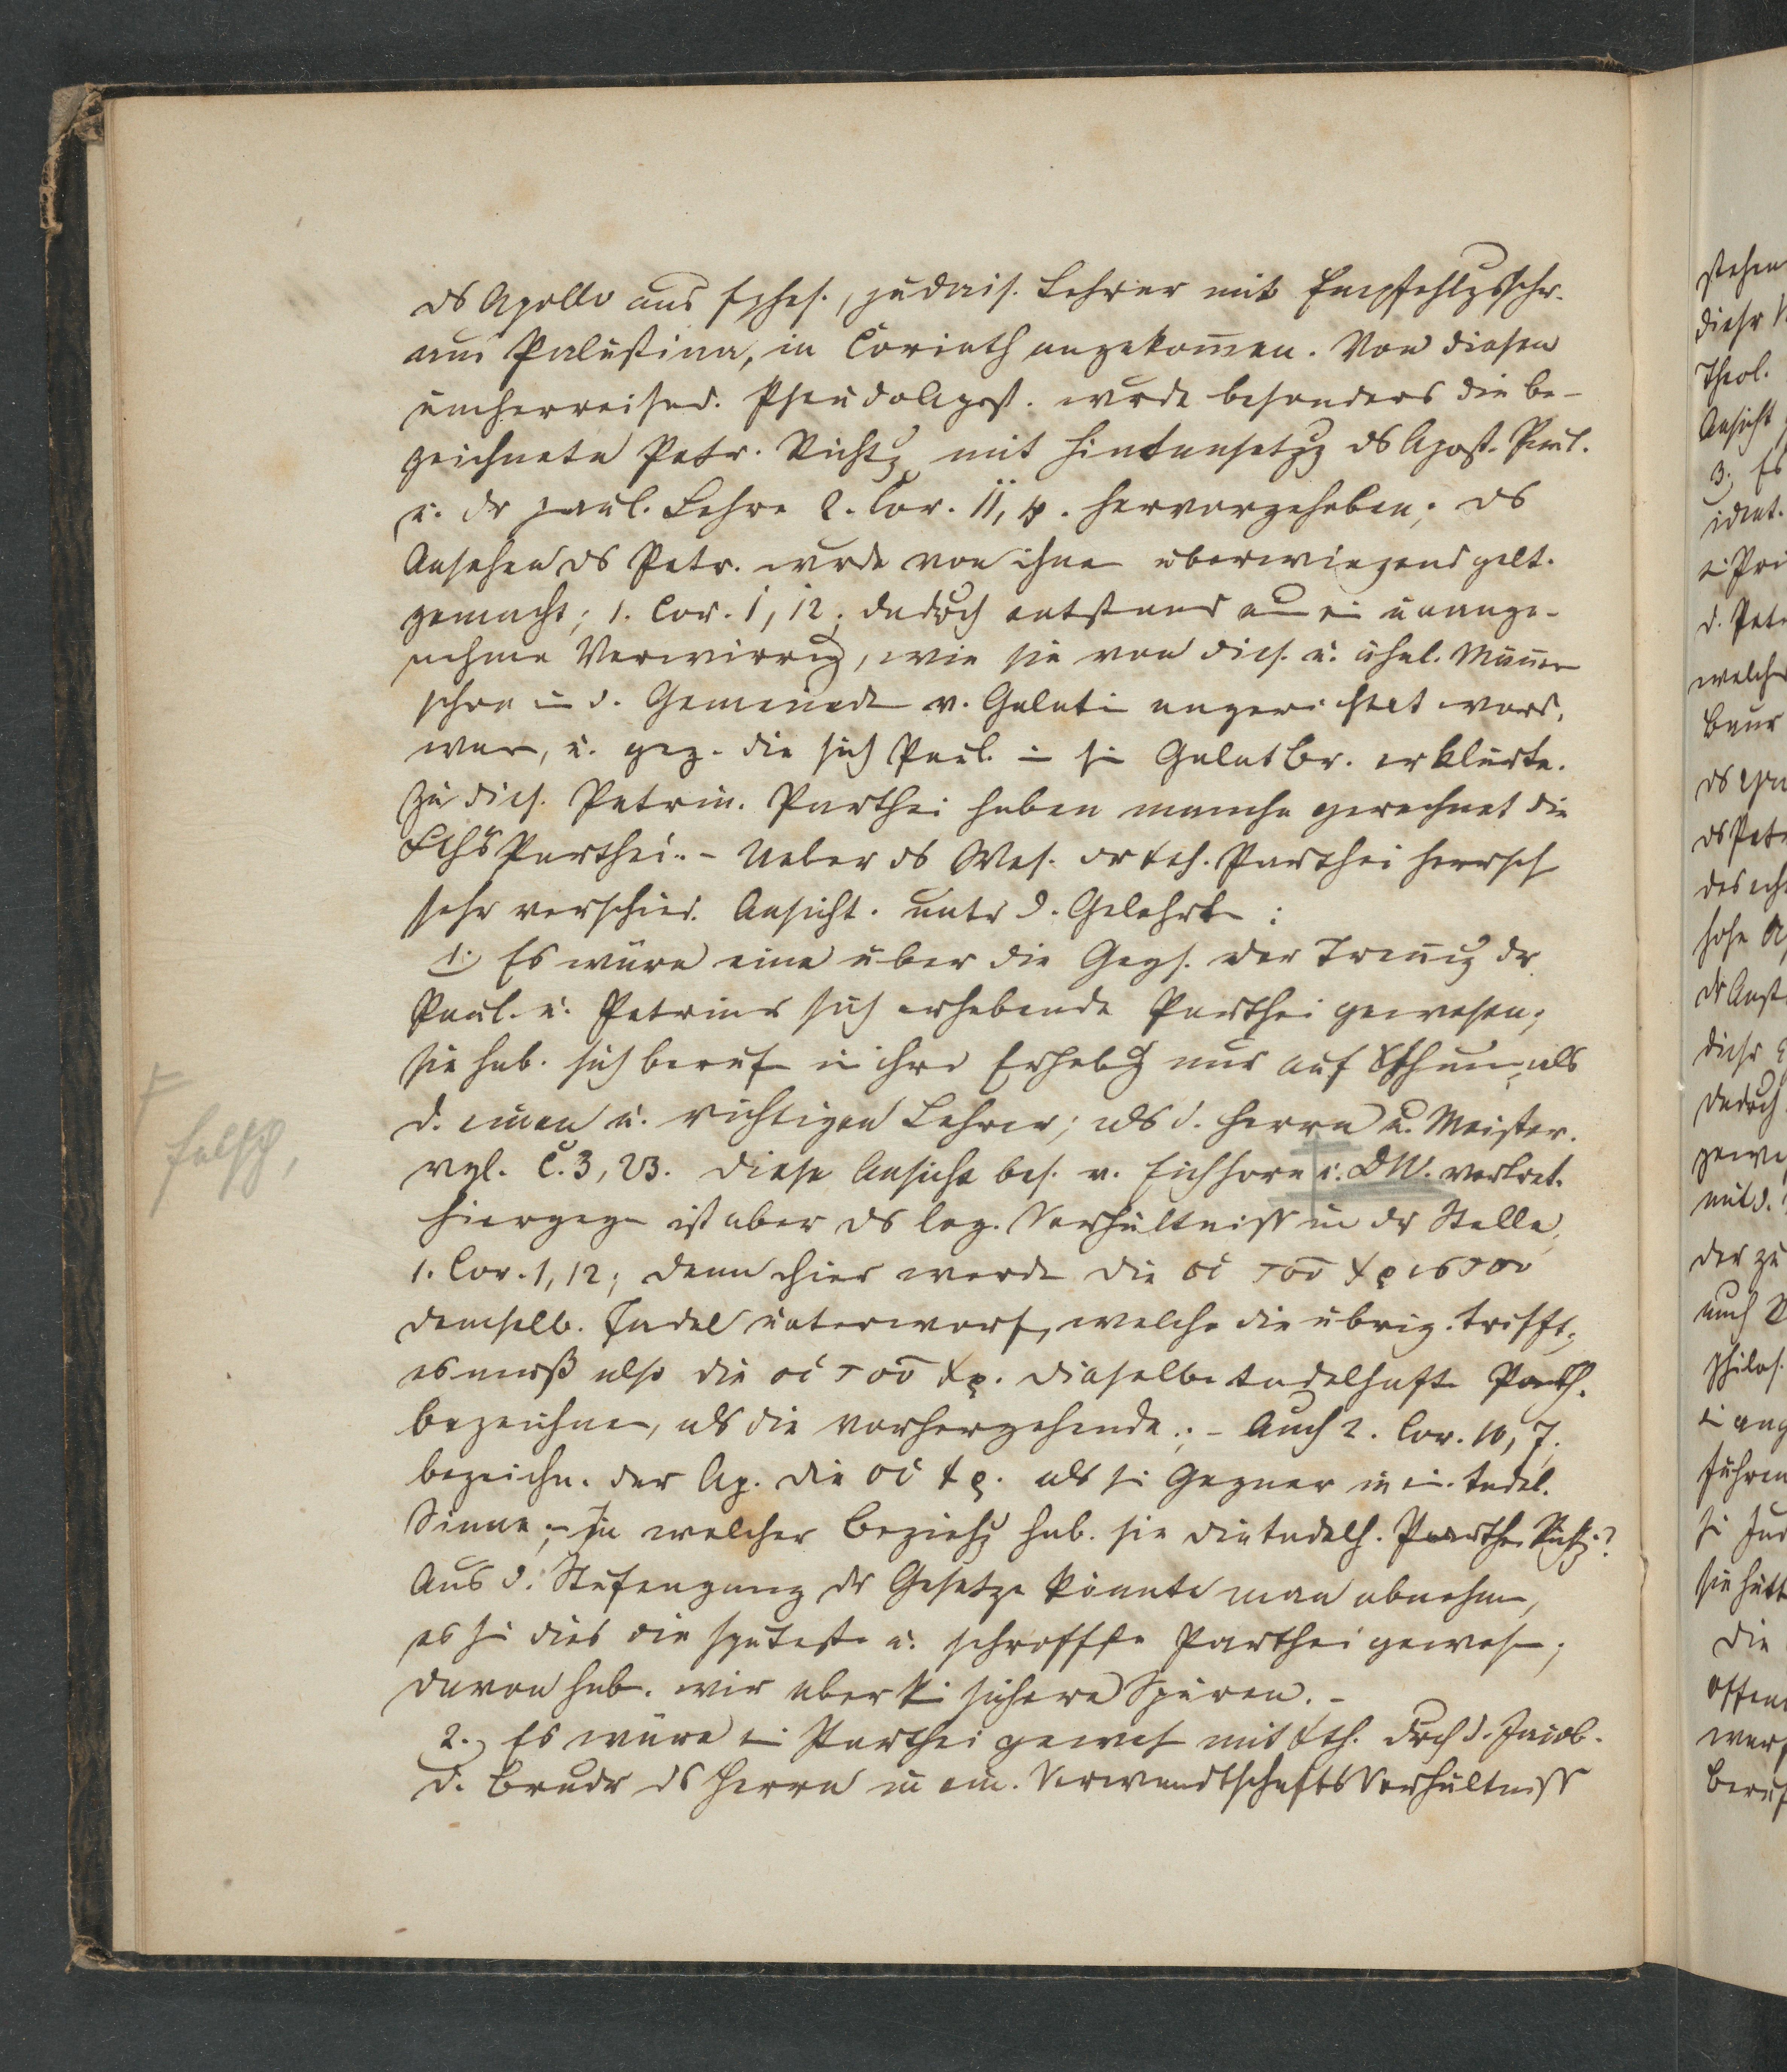 ds Apollo aus Ephes., judais. Lehrer mit Empfehlgsschr.
aus Palästina, in Corinth angekom̄en. Von diesen
umherreisend. PseudoApost. wurde besonders die be-
zeichnete Petr. Richtg mit Hintansetzg ds Apost. Paul.
u. dr paul. Lehre 2. Cor. 11, 4. hervorgehoben; ds
Ansehen ds Petr. wurde von ihne überwiegend gelt.
gemacht; 1. Cor. 1, 12; dadurch entstand ei unange-
nehme Verwirrg, wie sie von dies. u. ähnl. Män̄er
schon in d. Gemeinde v. Galati angerichtet word.
war, u. geg. die sich Paul. in si Galatbr. erklärte.
Zu dies. Petrin. Parthei haben manche gerechnet die
Parthei. - Ueber ds Wes. dr Parthei herrsch
sehr verschied. Ansicht. untr d. Gelehrte:
1.) Es wäre eine über die Gegs. der Tren̄ug dr
Paul. u. Petriner sich erhebende Parthei gewesen;
sie hab. sich beruf in ihre Erhebg nur auf als
d. einen u. richtigen Lehrer; als d. Herrn u. Meister.
vgl. C. 3, 23. Diese Ansicht bes. v. Eichhorn u. DW. vertret.
Hiergege ist aber ds log. Verhältniss in dr Stelle,
1. Cor. 1, 12; denn hier werde die οἱ τοῦ Χριστοῦ
demselb. Tadel unterworf, welche die übrig. trifft;
es muß also die οἱ τοῦ Χρ. dieselbe tadelhafte Parth.
bezeichne, als die vorhergehende; - Auch 2. Cor. 10, 7.
bezeichn. der Ap. die οἱ Χρ. als si Gegner in ei. tadel.
Sinne; - In welcher Beziehg hab. sie die tadelh. Parthe Richtg.?
Aus d. Stufengang dr Gesetze könnte man abnehme,
es sei dies die späteste u. schroffste Parthei gewese;
davon hab. wir aber ki sichere Spuren. -
2.) Es wäre ei Parthei gewes mit drch d. Jacob.
d. Brudr ds Herrn in ein. VerwandtschaftsVerhältniss
falsch,